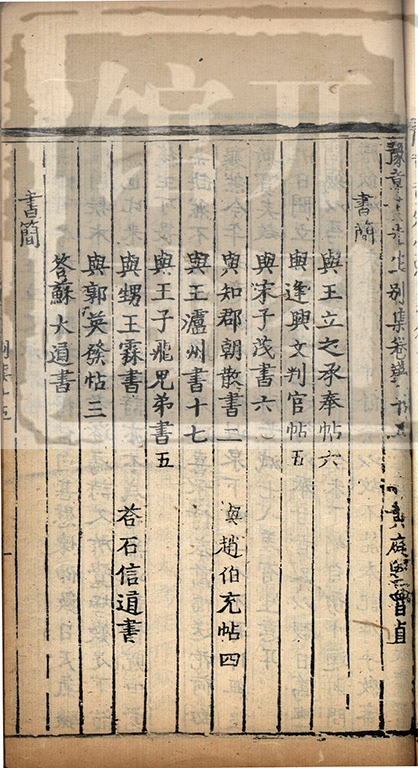 豫章先生別集卷第十五
黃庭堅魯直
書簡
與王立之承奉帖六
與逢興文判官帖五
與宋子茂書六
與知郡朝散書二 與趙伯充帖四
與王瀘州書十七
與王子飛兄弟書五
與甥王霖書 荅石信道書
與郭英發帖三
荅蘇大通書
書簡